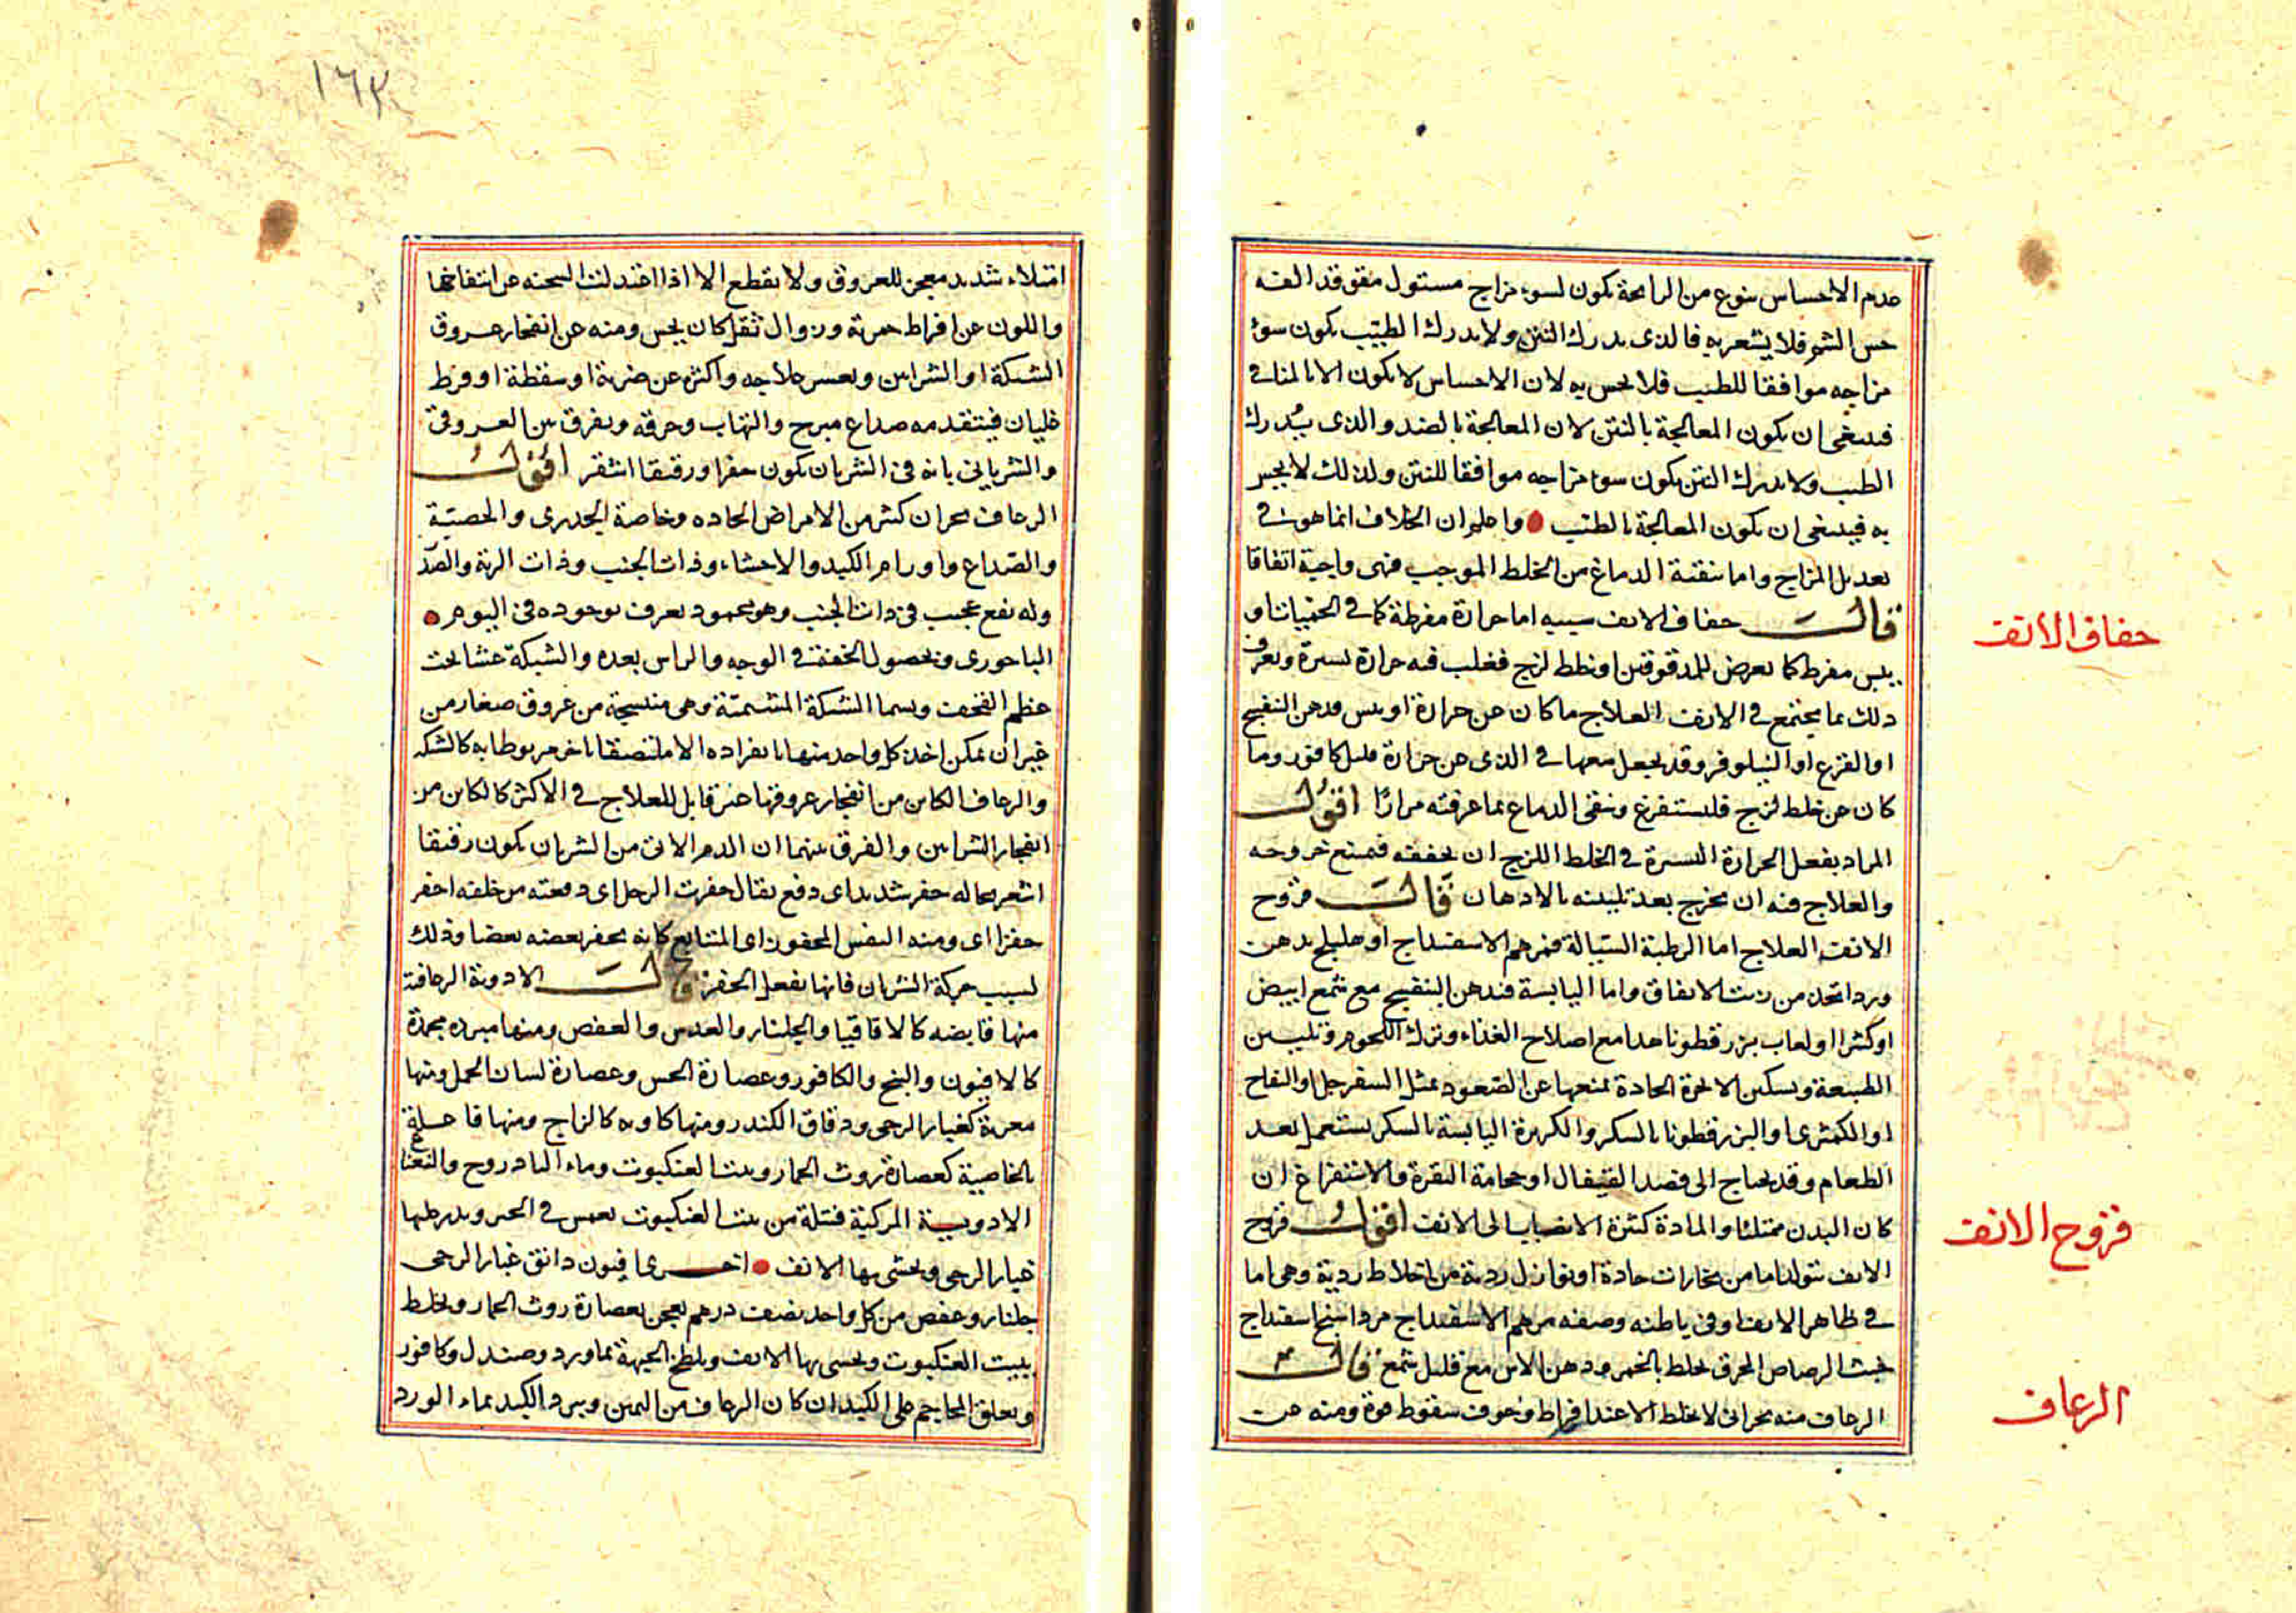 عدم الاحساس بنوع من الرايحة يكون لسوء مزاج مستول متفق قد الفه
حس الشم فلا يشعر به فالذى يدرك النتن ولا يدرك الطيب يكون سوء
مزاجه موافقا للطيب فلا يحس به لان الاحساس لا يكون الا بالمنافى
فينبغى ان يكون المعالجة بالنتن لان المعالجة بالضد والذى يدرك
الطيب ولا يدرك النتن يكون سوء مزاجه موافقا للنتن ولذلك لا يحس
به فينبغى ان يكون المعالجة بالطيب واعلم ان الخلاف انما هو فى
تعديل المزاج واما تنقية الدماغ من الخلط الموجب فهى واجبة اتفاقا
قال جفاف الانف سببه اما حرارة مفرطة كما فى الحميات او
جفاف الانف
يبس مفرط كما يعرض للمدقوقين او خلط لزج فغلب فيه حرارة يسيرة ويعرف
ذلك بما يجتمع فى الانف العلاج ما كان عن حرارة او يبس فدهن البنفسج
او القرع او النيلوفر وقد يجعل معها فى الذى عن حرارة قليل كافور وما
كان عن خلط لزج فليستفرغ وينقى الدماغ بما عرفته مرارا اقول
المراد بفعل الحرارة اليسيرة فى الخلط اللزج ان يجففه فيمنع خروجه
والعلاج فيه ان يخرج بعد تليينه بالادهان قال قروح
الانف العلاج اما الرطبة السيالة فمرهم الاسفيداج او هليلج بدهن
ورد اتخد من زيت الانفاق واما اليابسة فدهن البنفسج مع شمع ابيض
او كثيرا او لعاب بزر قطونا هذا مع اصلاح الغذاء وترك اللحوم وتليين
الطبيعة وتسكين الابخرة الحادة بمنعها عن الصعود بمثل السفرجل او التفاح
او الكمثرى او البزرقطونا بالسكر والكزبرة اليابسة بالسكر يستعمل بعد
الطعام وقد يحتاج الى فصد القيفال او حجامة النقرة والاستفراغ ان
كان البدن ممتلئا والمادة كثيرة الانصباب الى الانف اقول قروح
قروح الانف
الانف تتولد اما من بخارات حادة او نوازل ردية من اخلاط ردية وهى اما
فى ظاهر الانف او فى باطنه وصفه مرهم الاسفيداج مرداسنج اسفيداج
خبث الرصاص المحرق يخلط بالخمر ودهن الاس مع قليل شمع قال
الرعاف منه بحرانى لا يخلط الا عند افراط وخوف سقوط قوة ومنه عن
الرعاف
١٦٣
امتلاء شديد مفجر للعروق ولا يقطع الا اذا اعتدلت السحنه عن انتفاخها
واللون عن افراط حمرته وزوال ثقل كان يحس ومنه عن انفجار عروق
الشبكة او الشرايين ويعسر علاجه واكثره عن ضربة او سقطة او فرط
غليان فيتقدمه صداع مبرح والتهاب وحرقه ويفرق بين العروقى
والشريانى بانه فى الشريان يكون حفزا ورقيقا اشقر اقول
الرعاف بحران كثير من الامراض الحاده وخاصة الجدرى والحصبة
والصداع واورام الكبد والاحشاء وذات الجنب وذات الرية والصد
وله نفع عجيب فى ذات الجنب وهو محمود يعرف بوجوده فى اليوم
الباحورى وبحصول الخفة فى الوجه والراس بعده والشبكة غشا تحت
عظم القحف ويسما الشبكة المشيمية وهى منتسجة من عروق صغار من
غير ان يمكن اخذ كل واحد منها بانفراده الا ملتصقا باخر مربوطا به كالشبكه
والرعاف الكاين من انفجار عروقها غير قابل للعلاج فى الاكثر كالكاين من
انفجار الشرايين والفرق بينهما ان الدم الاتى من الشريان يكون رقيقا
اشقر بحاله حفز شديد اى دفع يقال حفزت الرجل اى دفعته من خلفه احفز
حفزا اى ومنه النفس المحفوز اى المتتابع كانه يحفز بعضه بعضا وذلك
لسبب حركة الشريان فانها تفعل الحفز قال الادوية الرعافية
منها قابضه كالاقاقيا والجلنار والعدس والعفص ومنها مبرده مجمدة
كالافيون والبنج والكافور وعصارة الخس وعصارة لسان الحمل ومنها
مغرية كغبار الرحى ودقاق الكندر ومنها كاويه كالزاج ومنها فاعلة
بالخاصية كعصارة روث الحمار وبيت العنكبوت وماء البادروج والنعناع
الادوية المركبة فتيلة من بيت العنكبوت تغمس فى الحبر ويذر عليها
غبار الرحى ويحشى بها الانف اخرى افيون دانق غبار الرحى
جلنار وعفص من كل واحد نصف درهم يعجن بعصارة روث الحمار ويخلط
ببيت العنكبوت ويحشى بها الانف ويلطخ الجبهة بماورد وصندل وكافور
ويعلق المحاجم على الكبد ان كان الرعاف من اليمين ويبرد الكبد بماء الورد